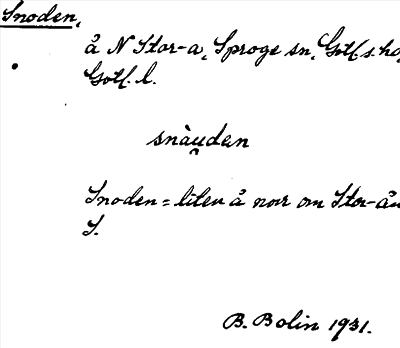 Snoden,
å N Stor-a, Sproge sn, Gotl. s. hd,
Gotl. l.
snàu̯dęn
Snoden = liten å norr om Stor-ån
S.
B. Bolin 1931.